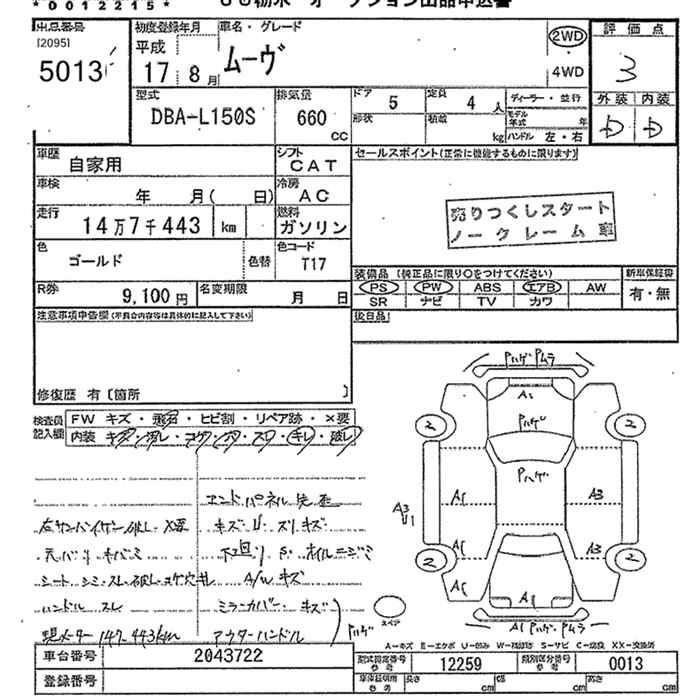 *0012215*
オークション出品申込書
出品番号 初度登録年月 車名・グレード 評価点
[2095] 平成 ムーヴ 2WD
5013 17 8月 4WD 3
型式 排気量 ドア 5 定員 4人 ディーラー・並行 外装 内装
DBA-L150S 660 CC 形状 積載 kg モデル年式 年 D D
ハンドル 左・右
車歴 自家用 シフト CAT セールスポイント(正常に機能するものに限ります)
車検 年 月( 日) 冷房 AC
走行 14万7千443 km 燃料 ガソリン 売りつくしスタート
ノークレーム車
色 ゴールド 色替 色コード T17
装備品 (純正品に限り○をつけてください) 新車保証書
R券 9,100円 名変期限 月 日 PS PW ABS エアB AW 有・無
SR ナビ TV カワ
注意事項申告欄(不具合内容等は具体的に記入して下さい) 後日品
修復歴 有 [箇所 ]
Pハゲ Pムラ
A1
検査員記入欄 FW キズ・飛石・ヒビ割・リペア跡・×要
内装 キズ・汚レ・コゲ・穴・スレ・キレ・破レ
Pハゲ
2 2
Pハゲ
エンドパネル
A1 A3
A3 U1
左サンバイザー破レ ×要 キズ U スリキズ
天バリ キバミ 下回リ S ホイルニジミ
A1 A3
2 2
シート シミ スレ 破レ コゲ穴 キレ A/W キズ
A1
ハンドル スレ ミラーカバー キズ
スペア
現メーター 147,443km アウターハンドル Pハゲ
A1 Pハゲ Pムラ
A-キズ E-エクボ U-凹み W-補修跡 S-サビ C-腐食 XX-交換済
車台番号 2043722 型式指定番号 参考 12259 類別区分番号 参考 0013
登録番号 車庫証明用 参考 長さ cm 幅 cm 高さ cm